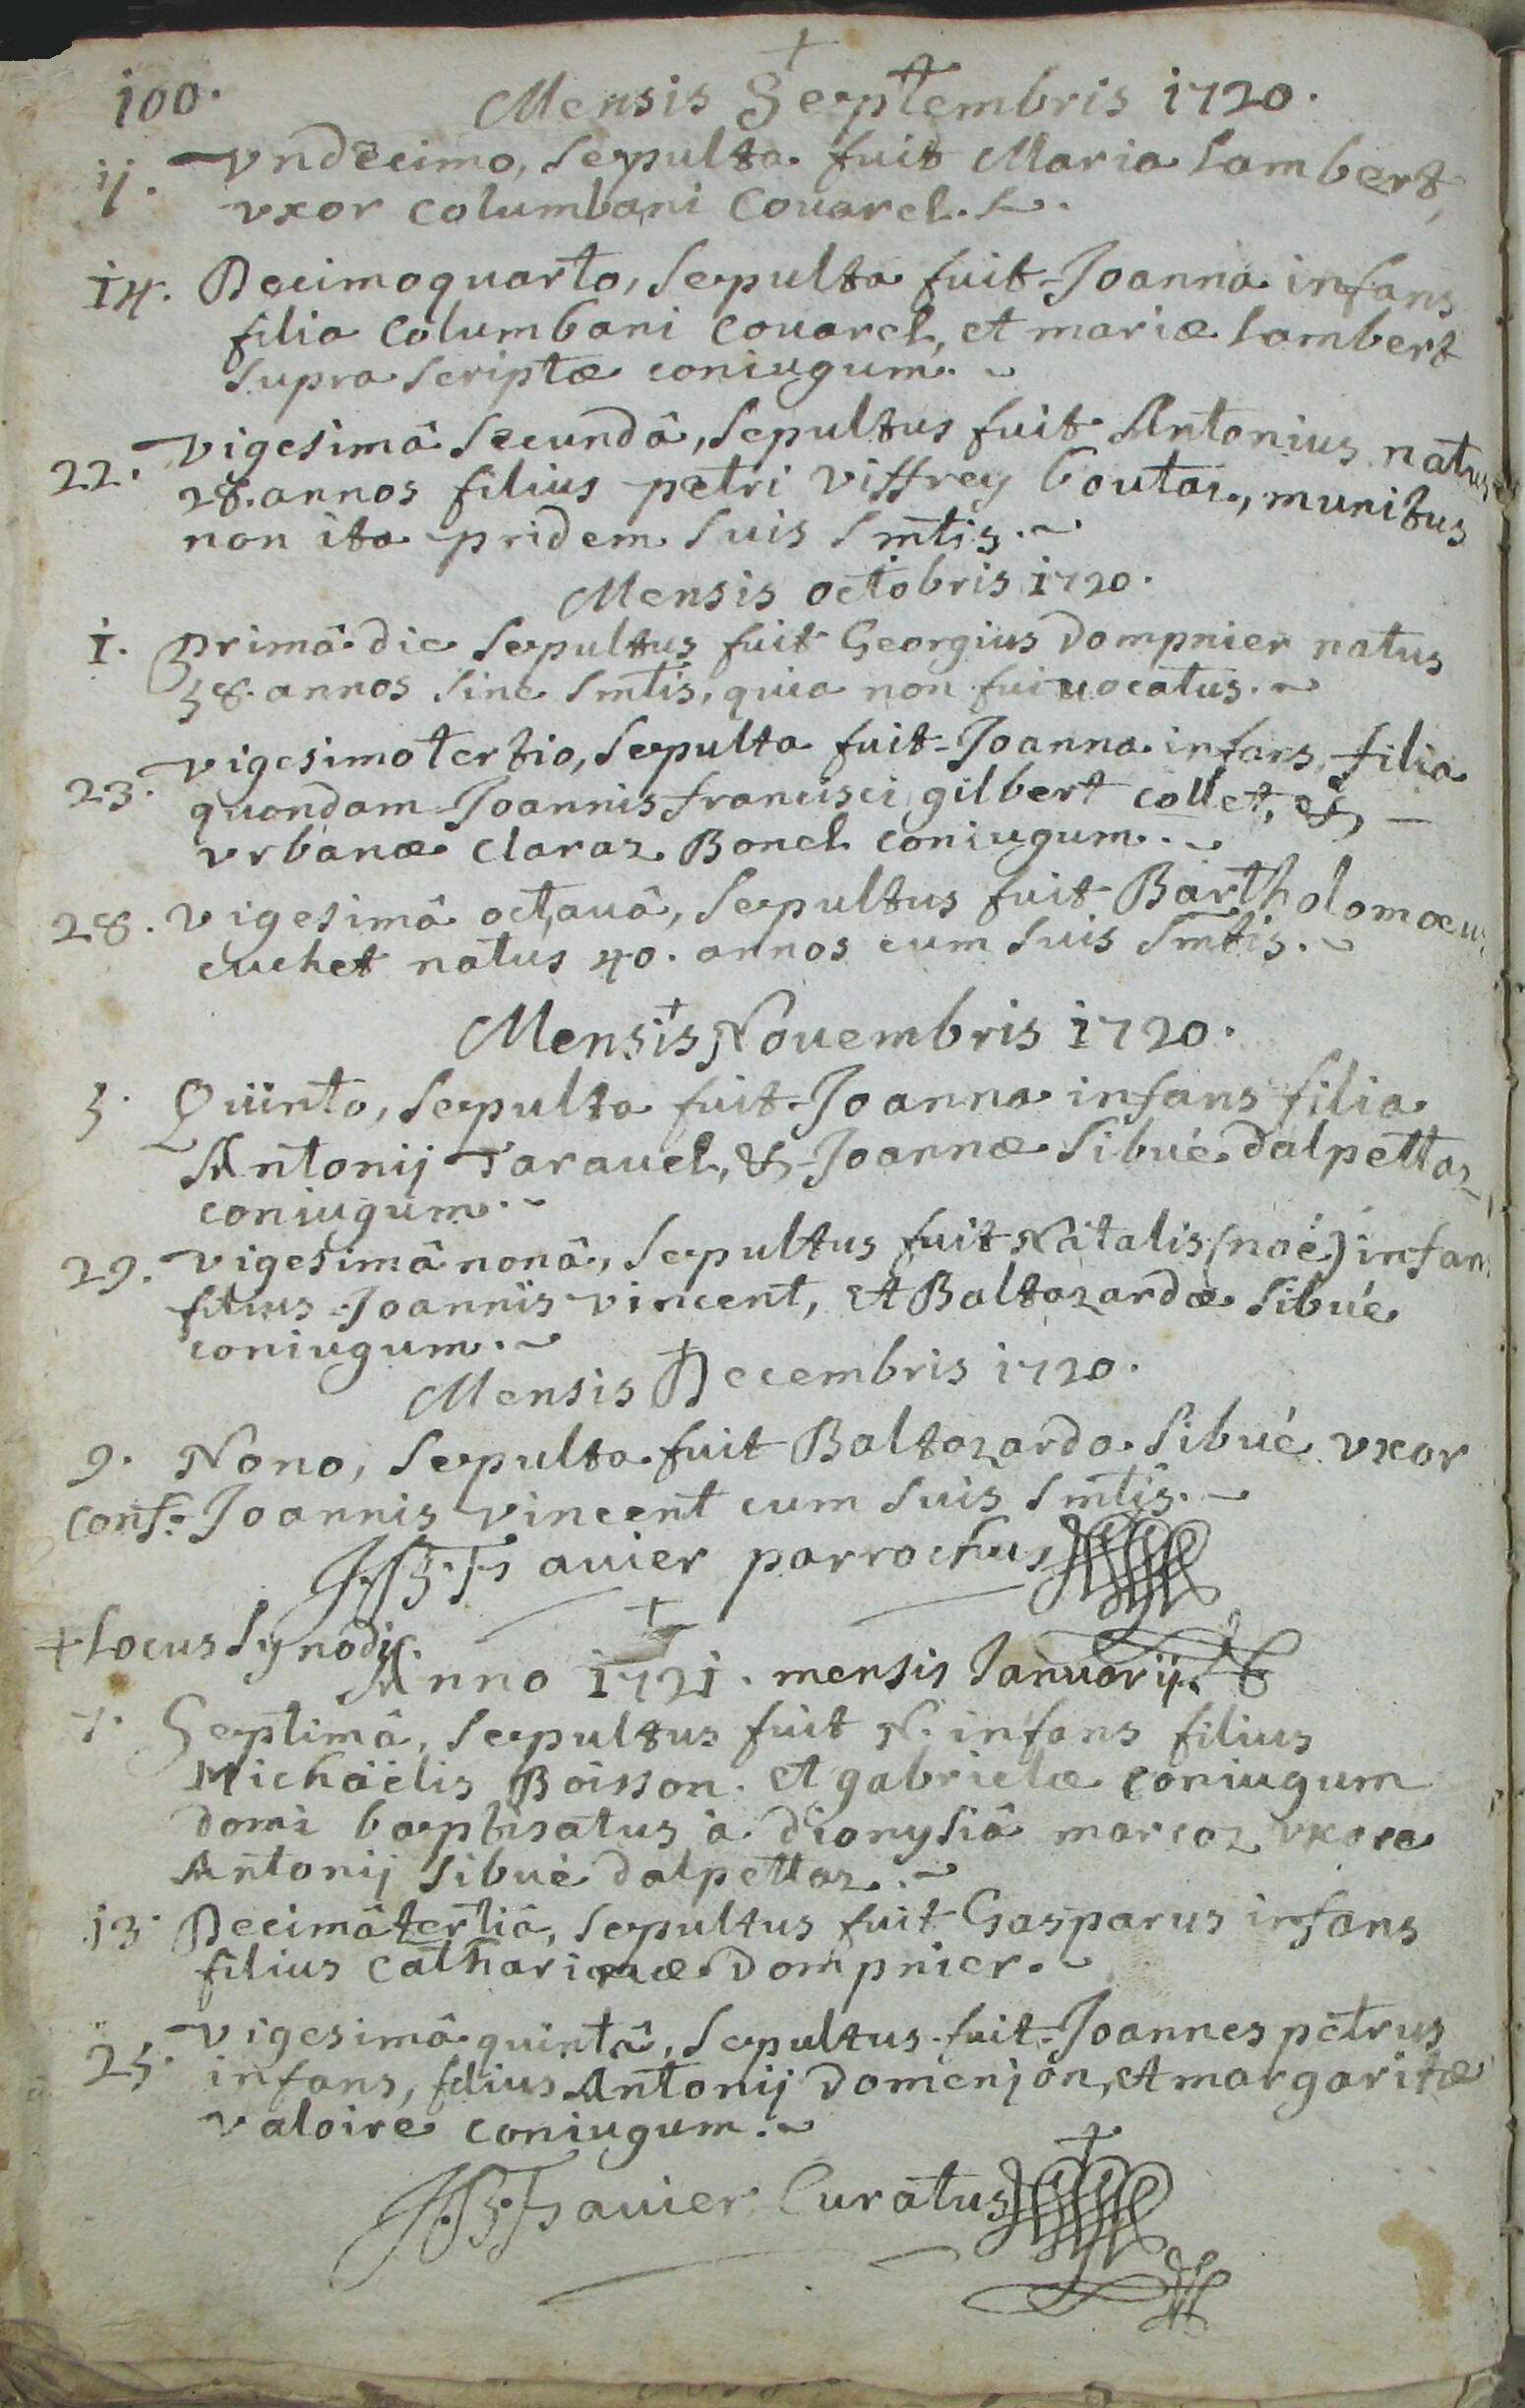 100.
Mensis Septembris 1720.
11. Vndecimo, Sepulta fuit Maria Lambert,
vxor Columbani Couarel.
14. Decimoquarto, Sepulta fuit Joanna infans
filia Columbani Couarel, et mariæ Lambert
Supra Scriptæ coniugum.
22. Vigesimâ Secundâ, Sepultus fuit Antonius natus
28. annos filius petri Viffrey boutaz, munitus
non ita pridem Suis Smtis.
Mensis octobris 1720.
1. Primâ die Sepultus fuit Georgius Dompnier natus
38. annos Sine Smtis, quia non fui uocatus.
23. Vigesimotertio, Sepulta fuit Joanna infans, filia
quondam Joannis francisci gilbert collet, &
Vrbanæ Claraz Bonel coniugum.
28. Vigesimâ octauâ, Sepultus fuit Bartholomæus
cuchet natus 40. annos cum Suis Smtis.
Mensis Nouembris 1720.
5. Quinto, Sepulta fuit Joanna infans filia
Antonij Tarauel, & Joannæ Sibué dalpettaz
coniugum.
29. Vigesimâ nonâ, Sepultus fuit Natalis (noé) infans
filius Joannis Vincent, et Baltazardæ Sibué
coniugum.
Mensis Decembris 1720.
9. Nono, Sepulta fuit Baltazarda Sibué vxor
conf. Joannis Vincent cum Suis Smtis.
Tauier parrochus
+ Locus Synodi.
Anno 1721. mensis Januarij.
7. Septimâ, Sepultus fuit N. infans filius
Michäelis Boisson. et gabrielæ coniugum
domi baptisatus à dionysiâ marcoz vxore
Antonij Sibué dalpettaz.
13. Decimâtertiâ, Sepultus fuit Gasparus infans
filius Catharinæ Dompnier.
25. Vigesimâ quintâ, Sepultus fuit Joannes petrus
infans, filius Antonij Domenjon, et margaritæ
Valoire coniugum.
Tauier Curatus